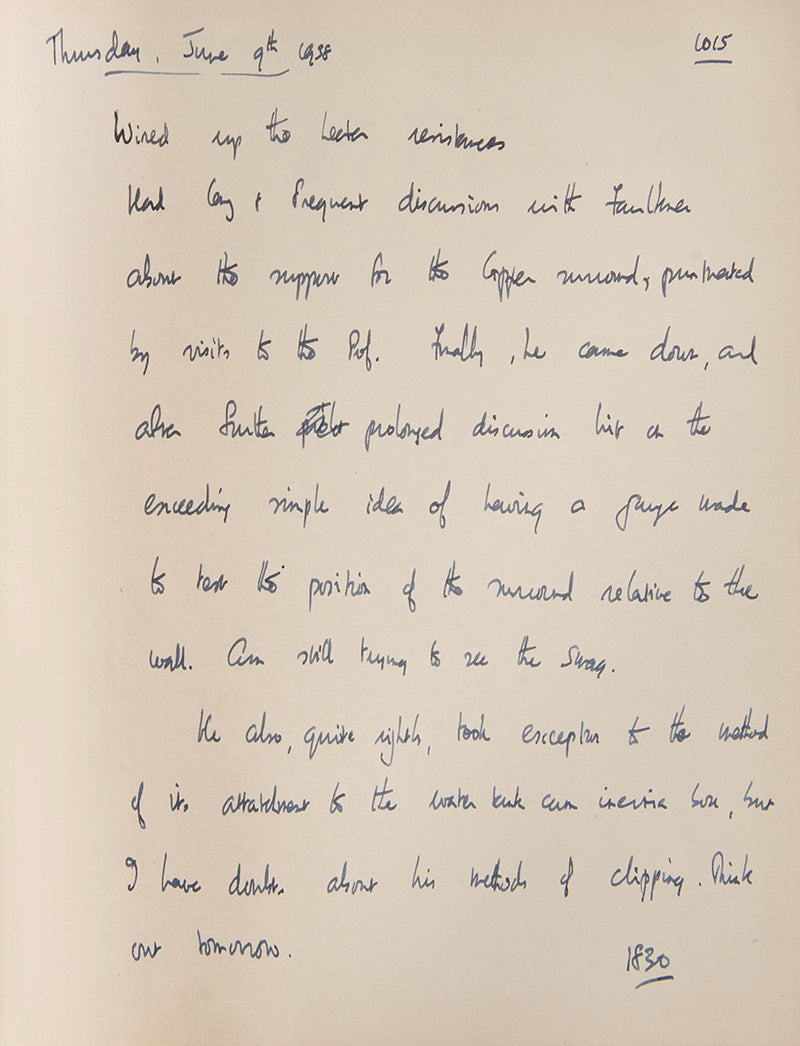 Thursday, June 9th 1938 1015
Wired up the heater resistances
Had long & frequent discussions with Faulkner
about the support for the Copper surround, punctuated
by visits to the Prof. Finally, he came down, and
after further prolonged discussion hit on the
exceeding simple idea of having a gauge made
to test the position of the surround relative to the
wall. Am still trying to see the snag.
He also, quite rightly, took exception to the method
of its attatchment to the water tank cum inertia box, but
I have doubts about his methods of clipping. Think
out tomorrow.
1830